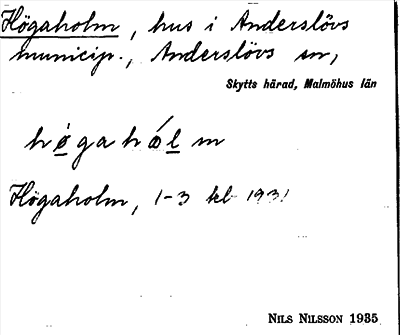 Högaholm, hus i Anderslövs
municip., Anderslövs sn,
Skytts härad, Malmöhus län
høgahólm
Högaholm, 1-3 tel 1931
NILS NILSSON 1935